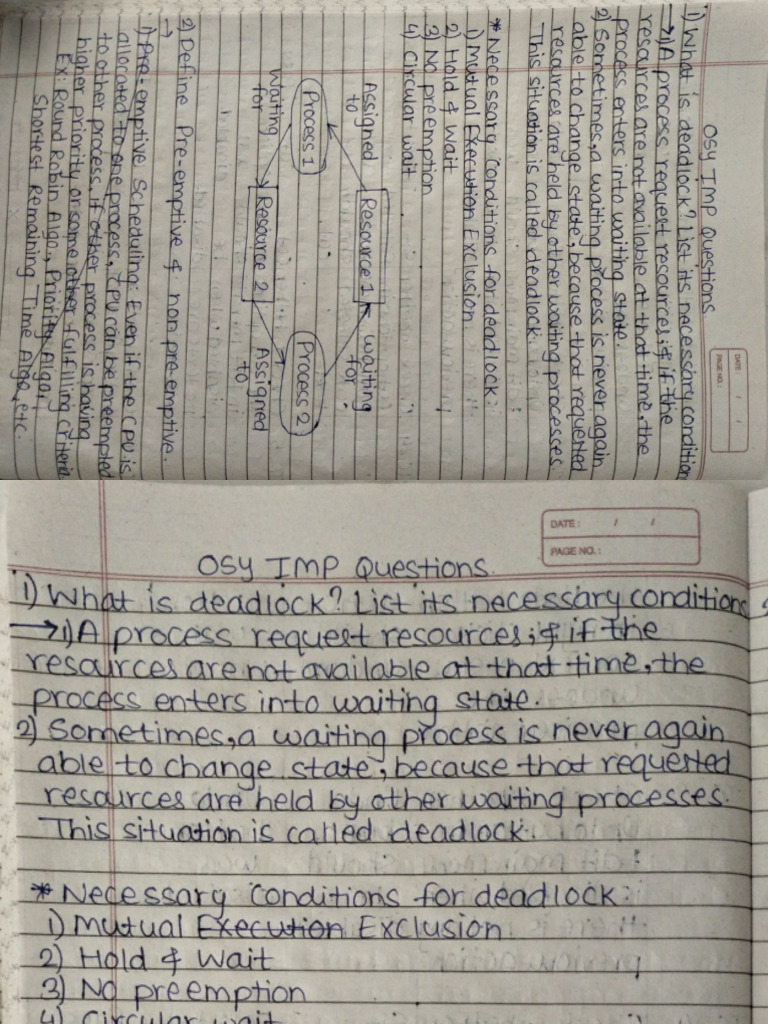 DATE: / /
PAGE NO.:
OSY IMP Questions
1) What is deadlock? List its necessary condition
→ 1) A process request resources; & if the
resources are not available at that time, the
process enters into waiting state.
2) Sometimes, a waiting process is never again
able to change state, because that requested
resources are held by other waiting processes.
This situation is called deadlock.
* Necessary conditions for deadlock:
1) Mutual Execution Exclusion
2) Hold & Wait
3) No preemption
4) Circular wait
Assigned to
Resource 1
waiting for
Process 1
Process 2
Waiting for
Resource 2
Assigned to
2) Define Pre-emptive & non pre-emptive.
→
1) Pre-emptive Scheduling: Even if the CPU is
allocated to one process, CPU can be preempted
to other process, if other process is having
higher priority or some other fulfilling criteria
Ex: Round Robin Algo., Priority Algo.,
Shortest Remaining Time Algo, etc.
DATE: / /
PAGE NO.:
OSY IMP Questions.
1) What is deadlock? List its necessary conditions
→ 1) A process request resources; & if the
resources are not available at that time, the
process enters into waiting state.
2) Sometimes, a waiting process is never again
able to change state, because that requested
resources are held by other waiting processes.
This situation is called deadlock.
* Necessary conditions for deadlock:
1) Mutual Execution Exclusion
2) Hold & Wait
3) No preemption
4) Circular wait